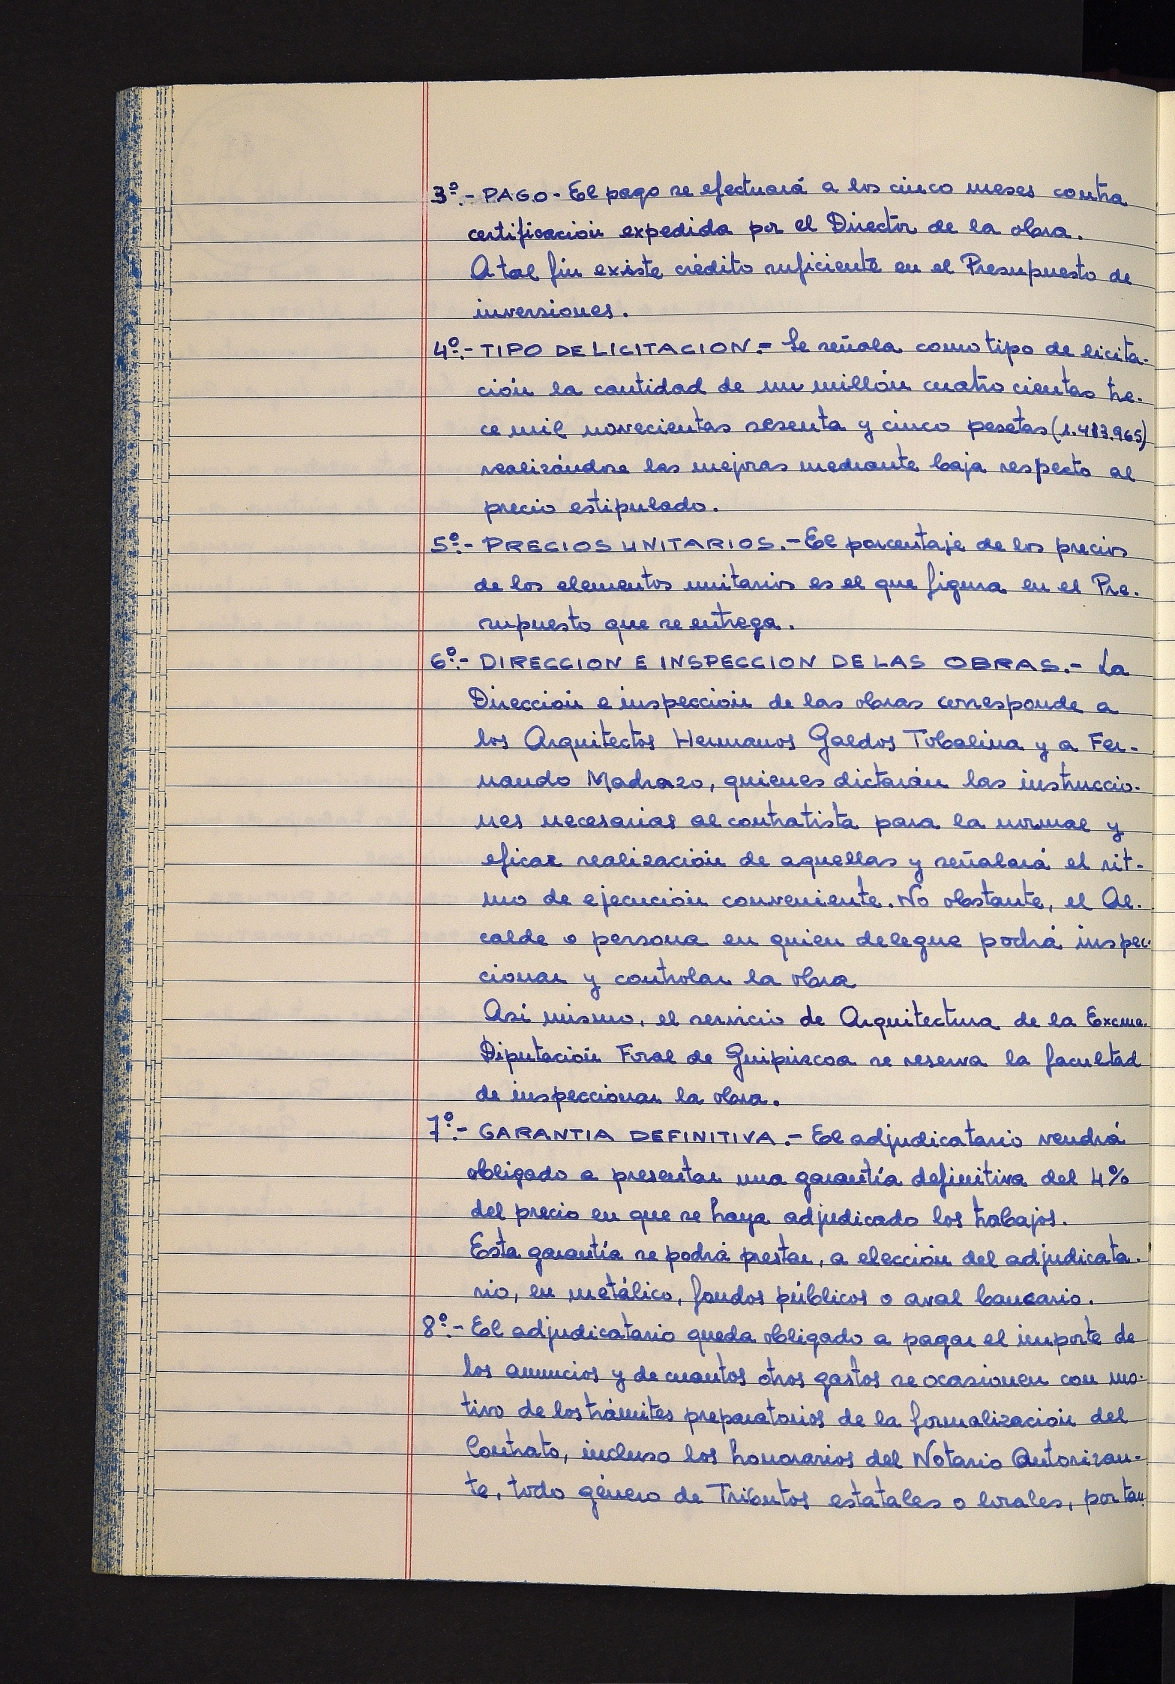 3º.- PAGO - El pago se efectuará a los cinco meses contra
certificación expedida por el Director de la obra.
A tal fin existe crédito suficiente en el Presupuesto de
inversiones.
4º.- TIPO DE LICITACION.- Se señala como tipo de licita-
ción la cantidad de un millón cuatro cientas tre-
ce mil novecientas sesenta y cinco pesetas (1.413.965)
realizándose las mejoras mediante baja respecto al
precio estipulado.
5º.- PRECIOS UNITARIOS.- El porcentaje de los precios
de los elementos unitarios es el que figura en el Pre-
supuesto que se entrega.
6º.- DIRECCION E INSPECCION DE LAS OBRAS.- La
Dirección e inspección de las obras corresponde a
los Arquitectos Hermanos Galdos Tobalina y a Fer-
nando Madrazo, quienes dictarán las instruccio-
nes necesarias al contratista para la normal y
eficaz realización de aquellas y señalará el rit-
mo de ejecución conveniente. No obstante, el Al-
calde o persona en quien delegue podrá inspec-
cionar y controlar la obra
Asi mismo, el servicio de Arquitectura de la Excma.
Diputación Foral de Guipúzcoa se reserva la facultad
de inspeccionar la obra.
7º.- GARANTIA DEFINITIVA.- El adjudicatario vendrá
obligado a presentar una garantía definitiva del 4%
del precio en que se haya adjudicado los trabajos.
Esta garantía se podrá prestar, a elección del adjudicata-
rio, en metálico, fondos públicos o aval bancario.
8º.- El adjudicatario queda obligado a pagar el importe de
los anuncios y de cuantos otros gastos se ocasionen con mo-
tivo de los trámites preparatorios de la formalización del
Contrato, incluso los honorarios del Notario Autorizan-
te, todo género de Tributos estatales o locales, por tan